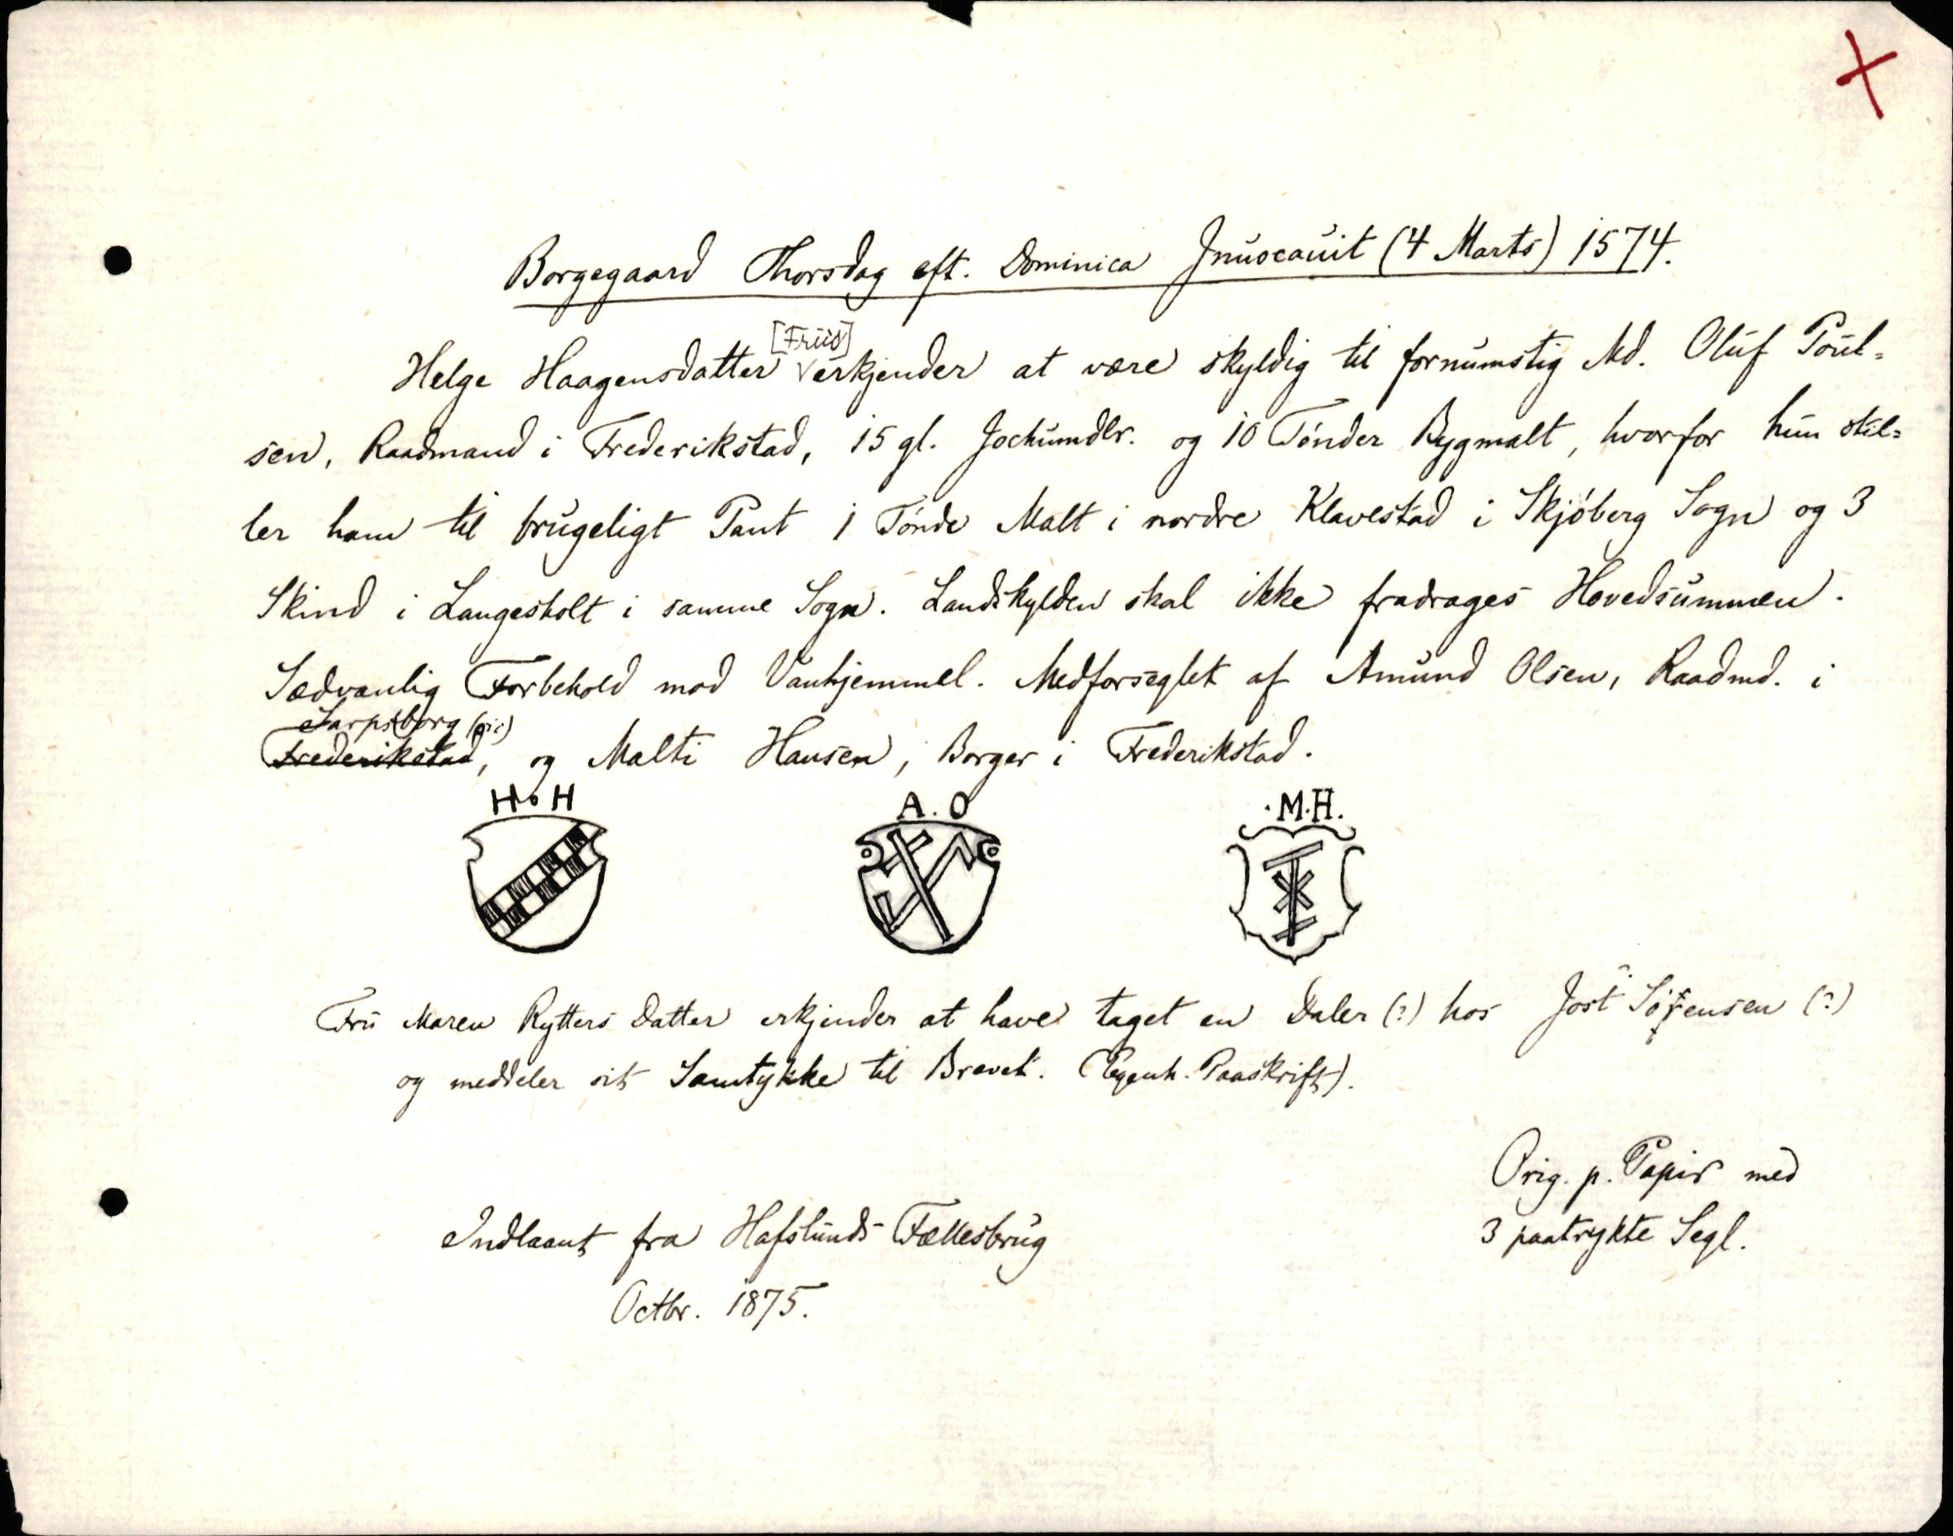 Borgegaard Thorsdag eft. Dominica Jnuocauit (4 Marts) 1574.
[Friis]
Helge Haagensdatter erkjender at være skyldig til fornumstig Md. Oluf Poul=
sen, Raadmand i Frederikstad, 15 gl. Jochumdlr. og 10 Tønder Bygmalt, hvorfor hun stil=
ler ham til brugeligt Pant 1 Tønde Malt i nordre Klavestad i Skjøberg Sogn og 3
Skind i Langesholt i samme Sogn. Landskylden skal ikke fradrages Hovedsummen.
Sædvanlig Forbehold mod Vanhjemmel. Medforseglet af Amund Olsen, Raadmd. i
Sarpsborg (sic)
Frederikstad, og Malti Hansen, Borger i Frederikstad.
H H A. O ·M·H.
Fru Maren Rytters Datter erkjender at have taget en Daler (?) hos Jost Sørensen (?)
og meddeler sit Samtykke til Brevet. (Egenh. Paaskrift).
Orig. p. Papir med
3 paatrykte Segl.
Indlaant fra Hafslunds Fællesbrug
Octbr. 1875.